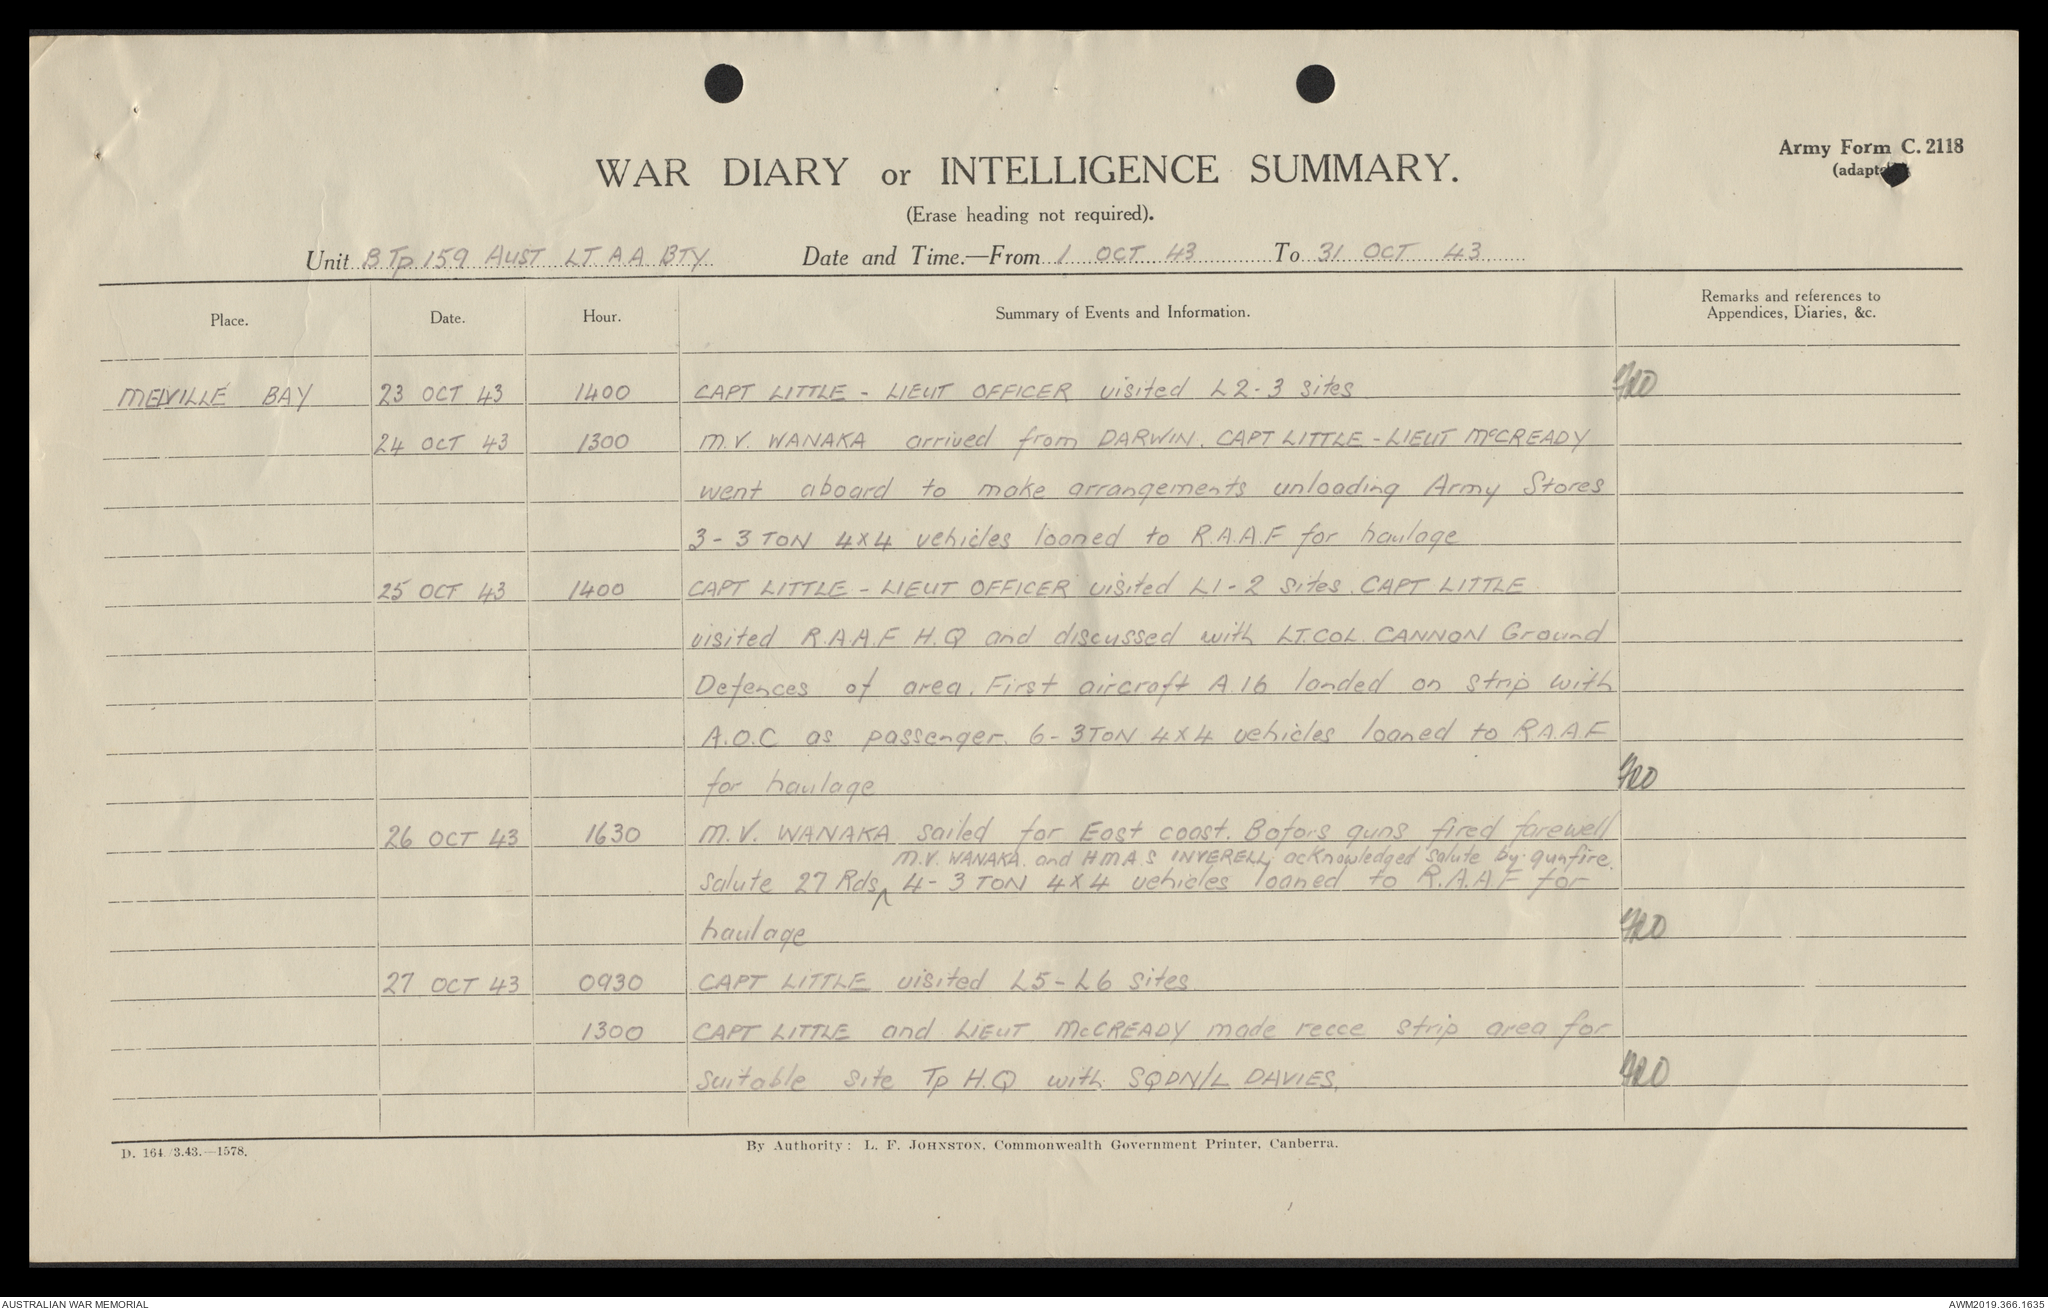 Army Form C. 2118
WAR DIARY or INTELLIGENCE SUMMARY.
(Erase heading not required).
Unit B Tp 159 AUST LT. A A BTY Date and Time.—From 1 OCT 43 To 31 OCT 43
Place. Date. Hour. Summary of Events and Information. Remarks and references to
Appendices, Diaries, &c.
MELVILLE BAY 23 OCT 43 1400 CAPT LITTLE - LIEUT OFFICER visited L2-3 sites
24 OCT 43 1300 M.V. WANAKA arrived from DARWIN. CAPT LITTLE - LIEUT McCREADY
went aboard to make arrangements unloading Army Stores
3 - 3 TON 4x4 vehicles loaned to R.A.A.F for haulage
25 OCT 43 1400 CAPT LITTLE - LIEUT OFFICER visited L1-2 sites. CAPT LITTLE
visited R.A.A.F H.Q and discussed with LT.COL. CANNON Ground
Defences of area. First aircraft A.16 landed on strip with
A.O.C as passenger. 6 - 3 TON 4x4 vehicles loaned to R.A.A.F
for haulage
26 OCT 43 1630 M.V. WANAKA sailed for East coast. Bofors guns fired farewell
M.V. WANAKA and H.M.A.S INVERELL acknowledged salute by gunfire.
salute 27 Rds ^ 4 - 3 TON 4x4 vehicles loaned to R.A.A.F for
haulage
27 OCT 43 0930 CAPT LITTLE visited L5 - L6 sites
1300 CAPT LITTLE and LIEUT McCREADY made recce strip area for
suitable site Tp H.Q with SQDN/L DAVIES.
D. 164/3.43.—1578.
By Authority: L. F. JOHNSTON, Commonwealth Government Printer, Canberra.
AUSTRALIAN WAR MEMORIAL
AWM2019.366.1635